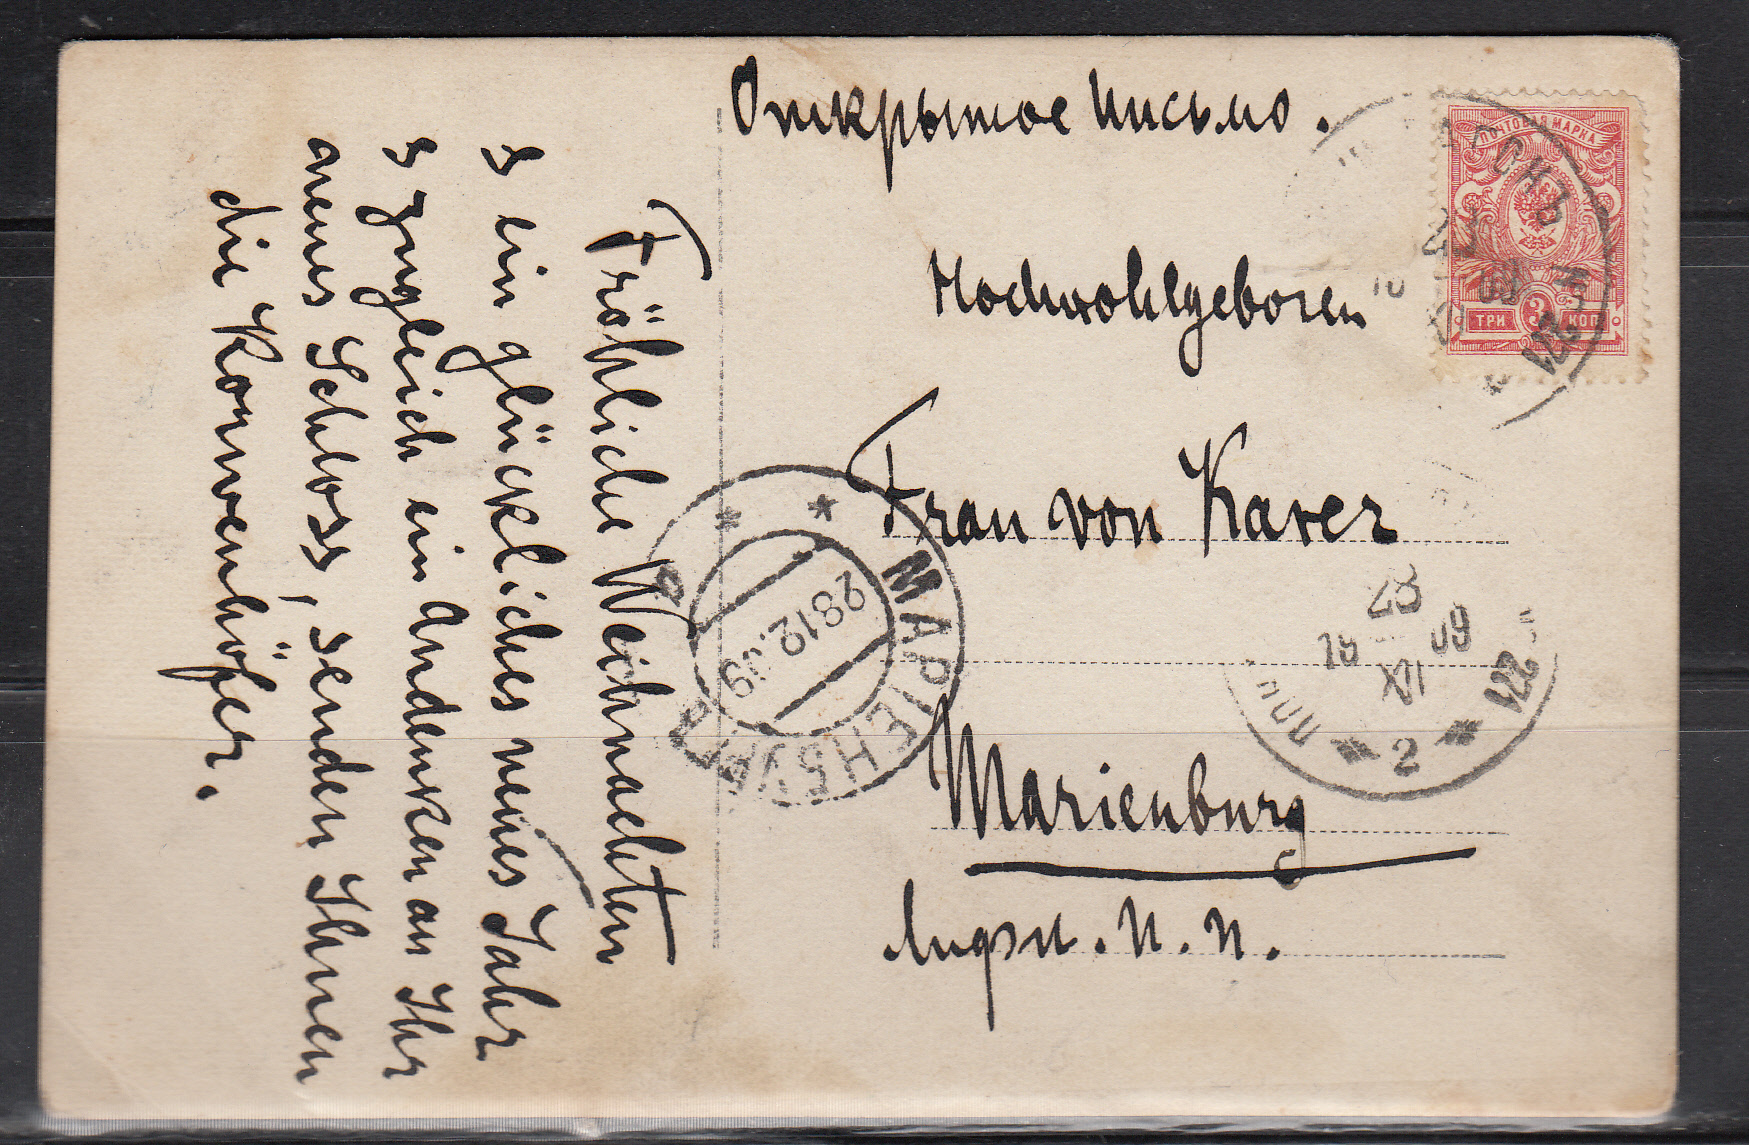 Открытое письмо.
Hochwohlgeboren
Frau von Kaver
Marienburg
Лифл. г. г.
Fröhliche Weihnachten
& ein glückliches neues Jahr
& zugleich ein Andenken an Ihr
neues Schloss, senden Ihnen
die Kornenhöfer.
ПОЧТОВАЯ МАРКА
3
ТРИ КОП
МАРІЕНБУРГЪ
28 12. 09
28
XII
09
2